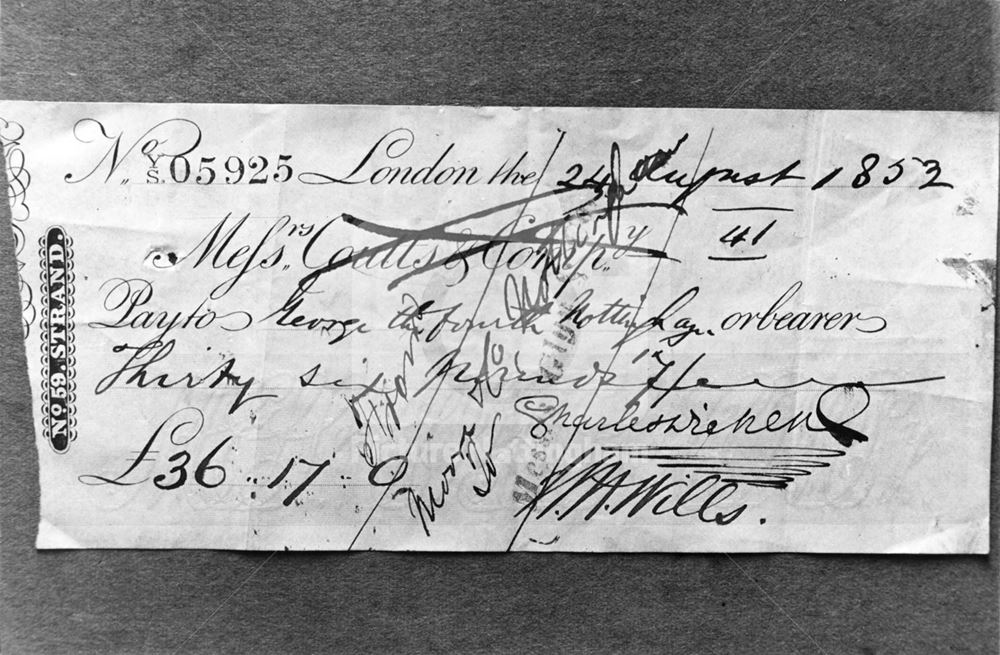 No. 05925 London the 24 August 1852
41
Messrs. Coutts & Compy.
Pay to George the fourth Nottingham or bearer
Thirty six Pounds 17/
Charles Dickens
£36.. 17.. 0
W.H. Wills.
No. 59. STRAND.
Moore